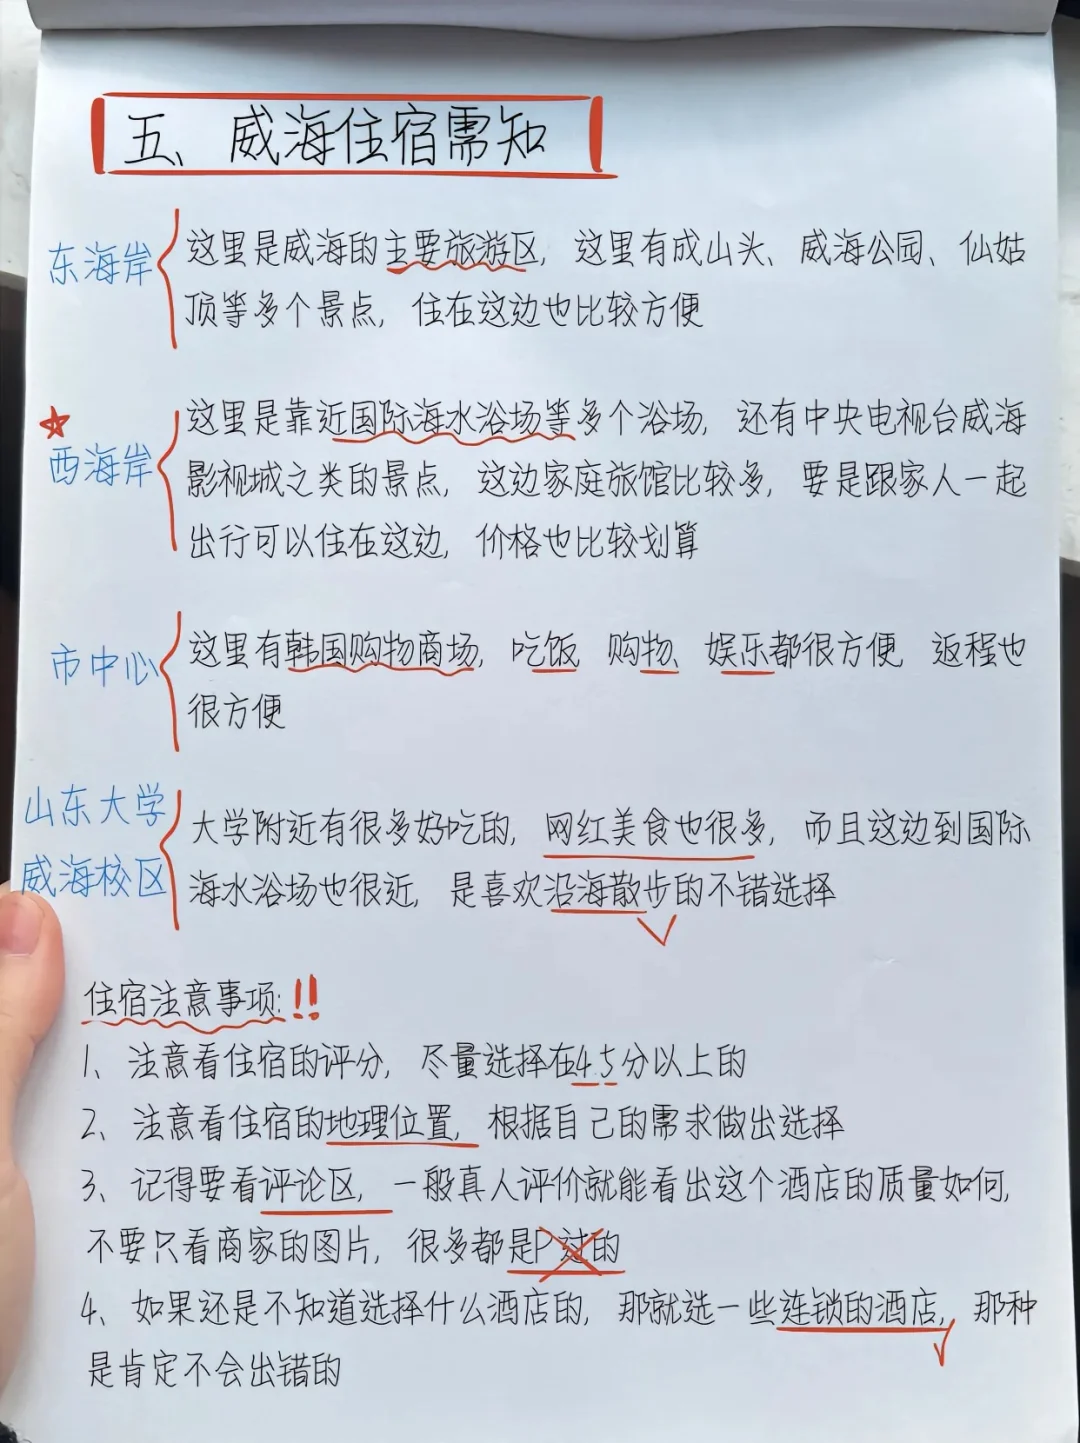 五、威海住宿需知
东海岸
这里是威海的主要旅游区，这里有成山头、威海公园、仙姑
顶等多个景点，住在这边也比较方便
西海岸
这里是靠近国际海水浴场等多个浴场，还有中央电视台威海
影视城之类的景点，这边家庭旅馆比较多，要是跟家人一起
出行可以住在这边，价格也比较划算
市中心
这里有韩国购物商场，吃饭、购物、娱乐都很方便 返程也
很方便
山东大学
威海校区
大学附近有很多好吃的，网红美食也很多，而且这边到国际
海水浴场也很近，是喜欢沿海散步的不错选择
住宿注意事项:!!
1、注意看住宿的评分，尽量选择在4.5分以上的
2、注意看住宿的地理位置，根据自己的需求做出选择
3、记得要看评论区，一般真人评价就能看出这个酒店的质量如何，
不要只看商家的图片，很多都是P过的
4、如果还是不知道选择什么酒店的，那就选一些连锁的酒店，那种
是肯定不会出错的